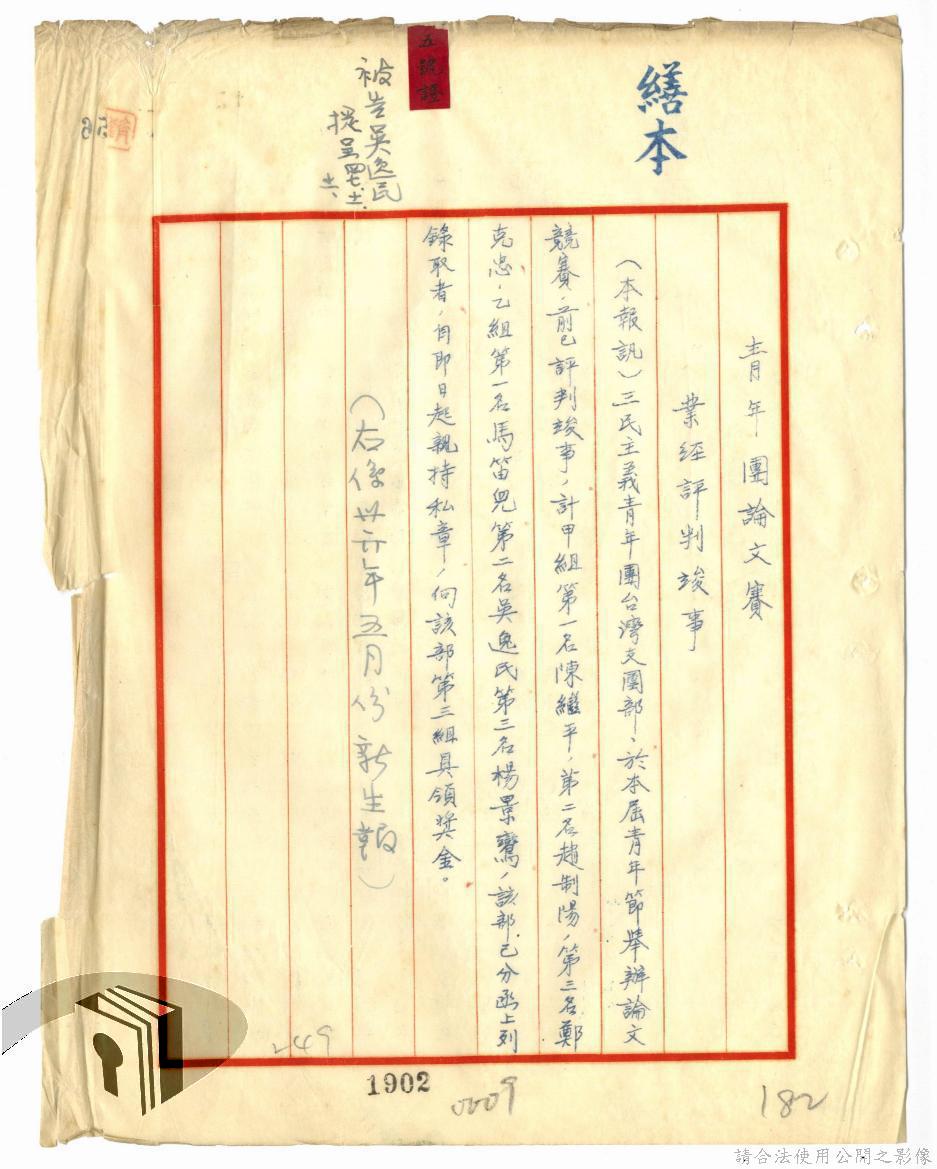 繕本
五號證
被告吳逸民
提呈 四七、十一、
十六、
青年團論文賽
業經評判竣事
(本報訊)三民主義青年團台灣支團部、於本屆青年節舉辦論文
競賽,前已評判竣事,計甲組第一名陳繼平,第二名趙制陽,第三名鄭
克忠,乙組第一名馬笛兒第二名吳逸民第三名楊景鸞,該部已分函上列
錄取者,自即日起親持私章,向該部第三組具領獎金。
(右係卅六年五月份新生報)
249
1902
0009
182
請合法使用公開之影像